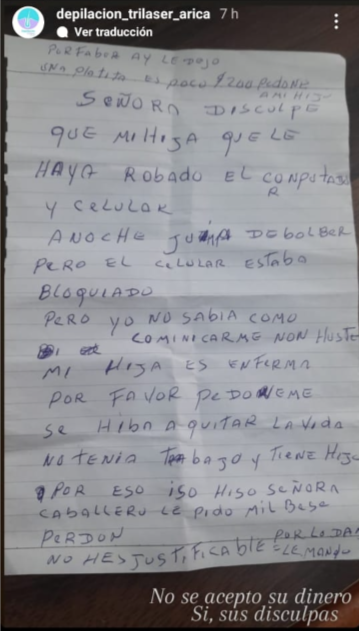 depilacion_trilaser_arica 7 h
Ver traducción
PORFABOR AY LE DEJO
UNA PLATITA ES POCO $200 PEDONE
A MI HIJA
SEÑORA DISCULPE
QUE MI HIJA QUE LE
HAYA ROBADO EL CONPUTADO
R
Y CELULAR
ANOCHE DEBOLBER
PERO EL CELULAR ESTABA
BLOQUIADO
PERO YO NO SABIA COMO
COMINICARME NON HUSTE
MI HIJA ES ENFERMA
POR FAVOR PEDONEME
SE HIBA A QUITAR LA VIDA
NO TENIA TRABAJO Y TIENE HIJO
POR ESO ISO HISO SEÑORA
CABALLERO LE PIDO MIL BESE
PERDON
NO HES JUSTIFICABLE = POR LO DAM
LE MANDO
No se acepto su dinero
Si, sus disculpas